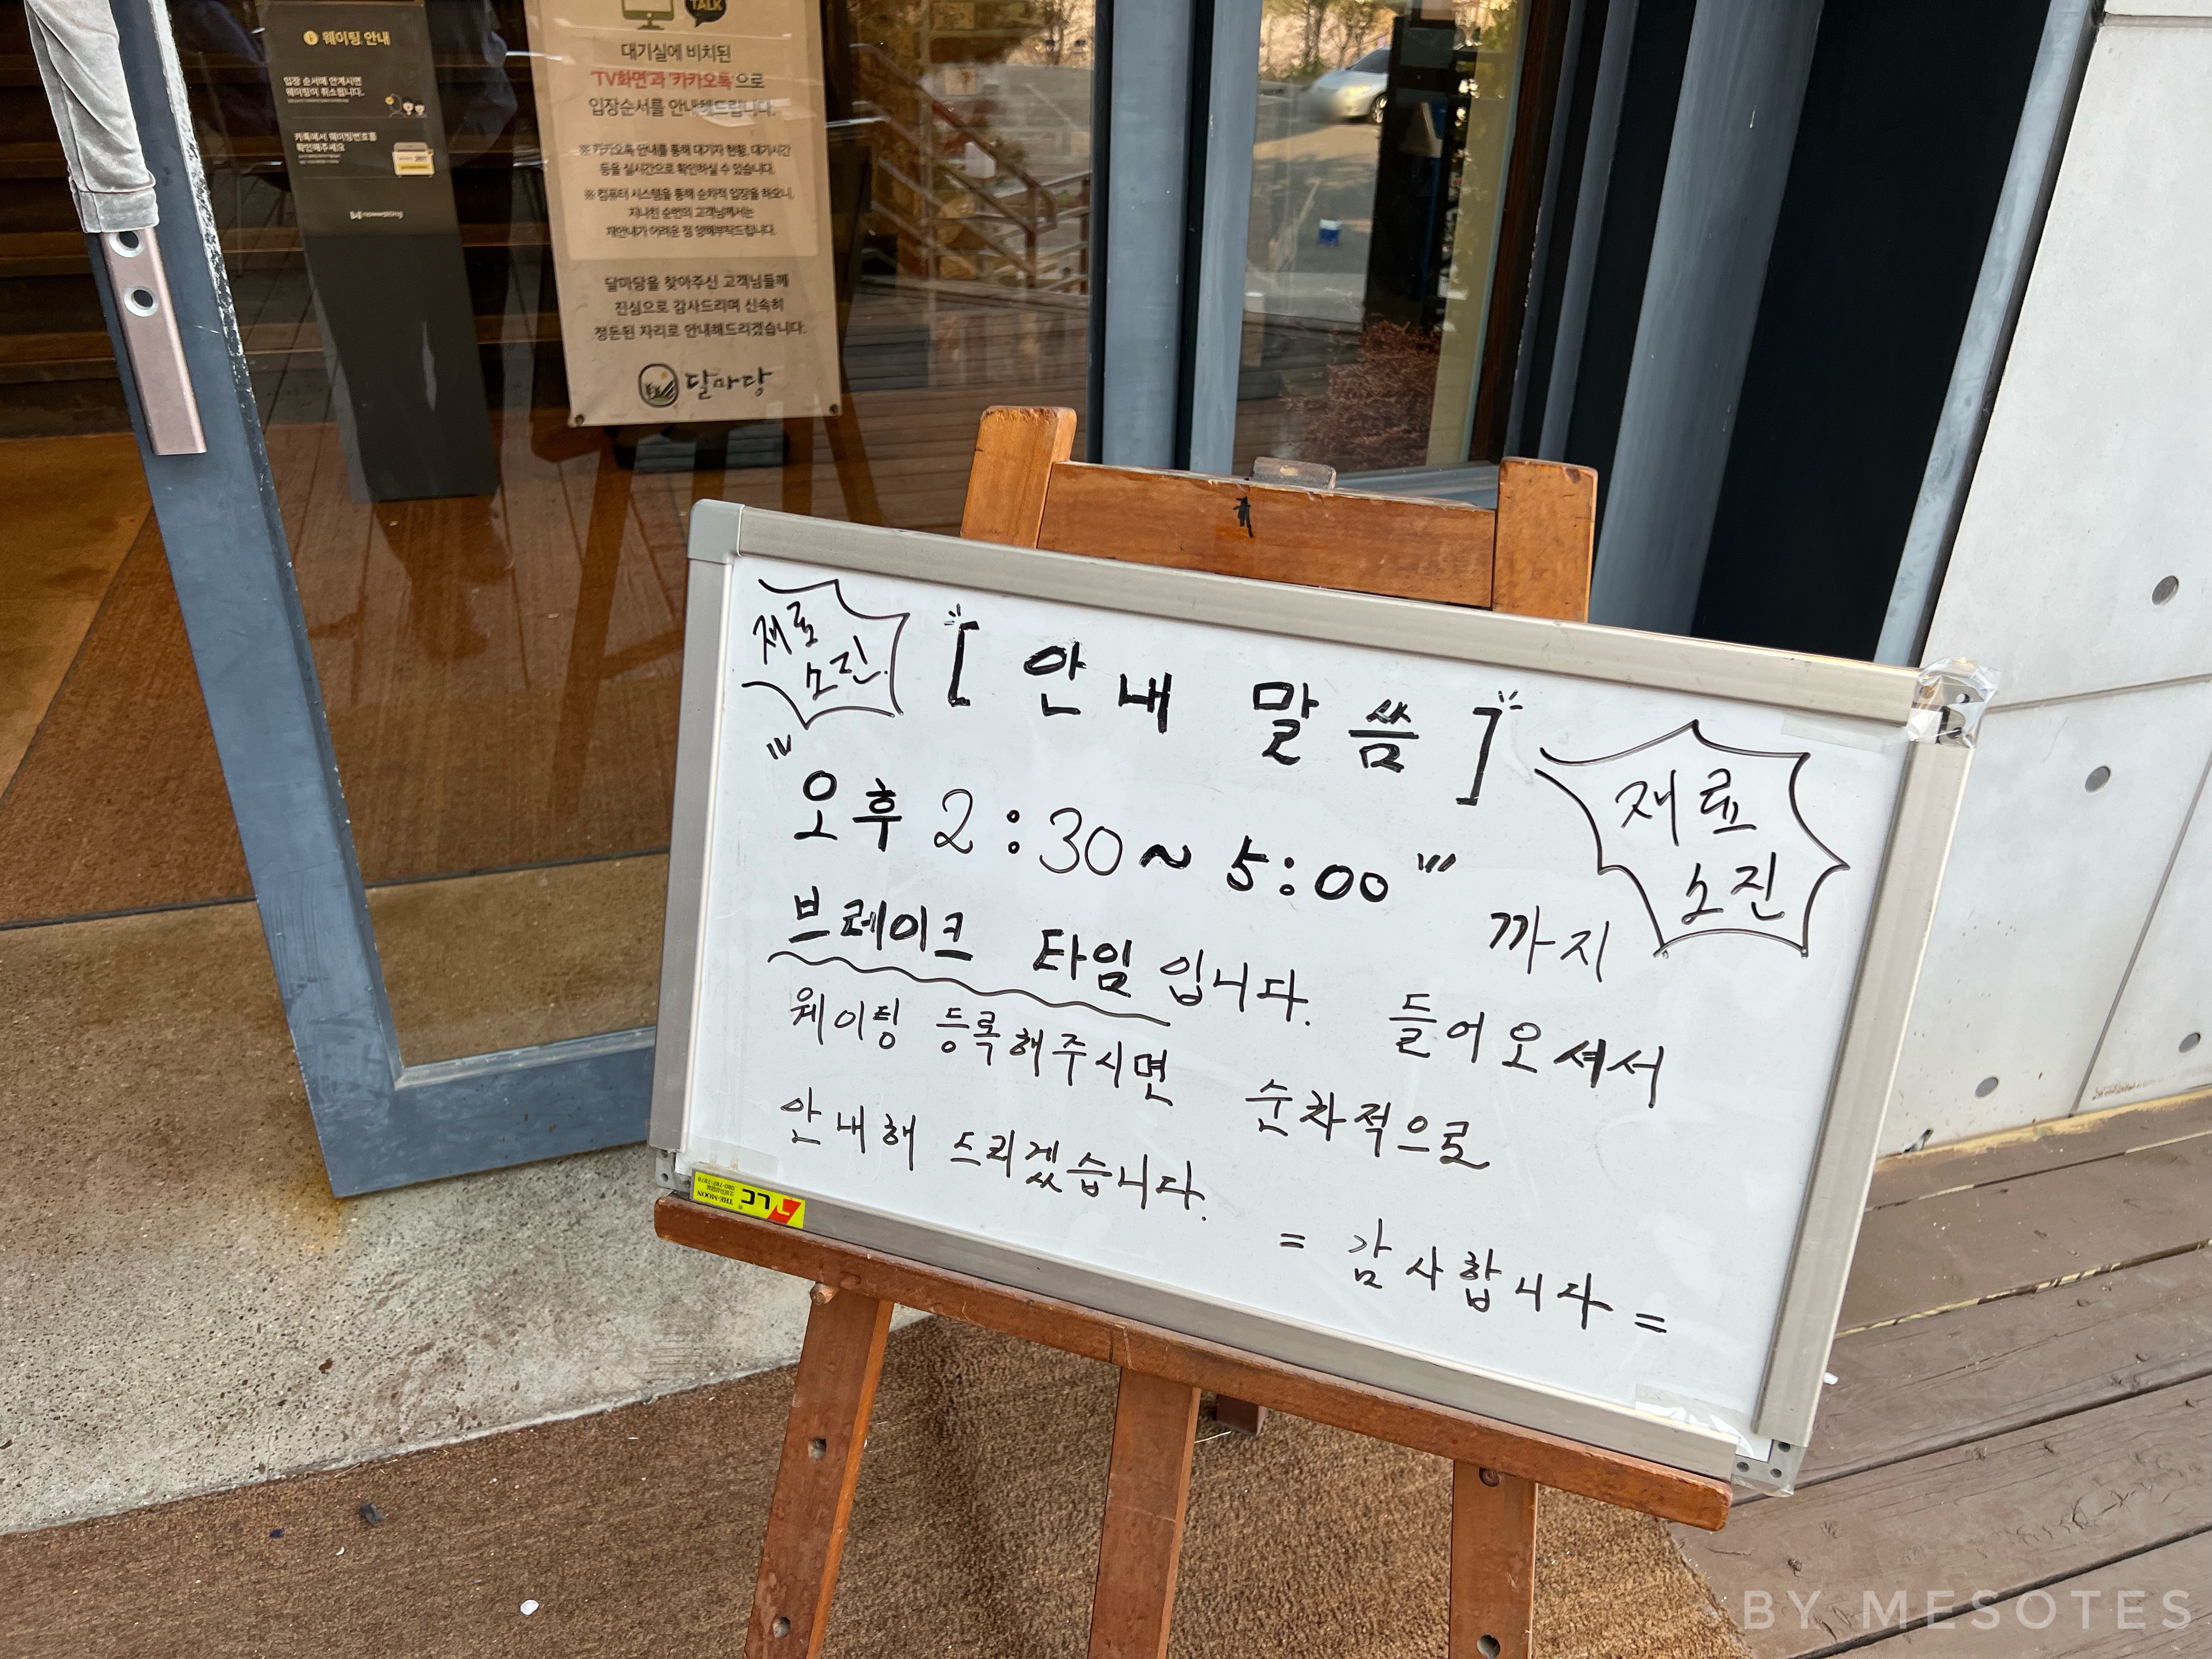 웨이팅 안내
입장 순서에 안계시면
웨이팅이 취소됩니다.
카톡에서 웨이팅번호를
확인해주세요
nowwaiting
TALK
대기실에 비치된
'TV화면'과 '카카오톡'으로
입장순서를 안내해드립니다.
※ 카카오톡 안내를 통해 대기자 현황, 대기시간
등을 실시간으로 확인하실 수 있습니다.
※ 컴퓨터 시스템을 통해 순차적 입장을 하오니,
지나친 순번의 고객님께서는
재안내가 어려운 점 양해부탁드립니다.
달마당을 찾아주신 고객님들께
진심으로 감사드리며 신속히
정돈된 자리로 안내해드리겠습니다.
달마당
재료
소진
[ 안내 말씀 ]
재료
소진
오후 2:30~5:00 까지
브레이크 타임입니다. 들어오셔서
웨이팅 등록해주시면 순차적으로
안내해 드리겠습니다.
= 감사합니다 =
THE MOON LC
BY MESOTES